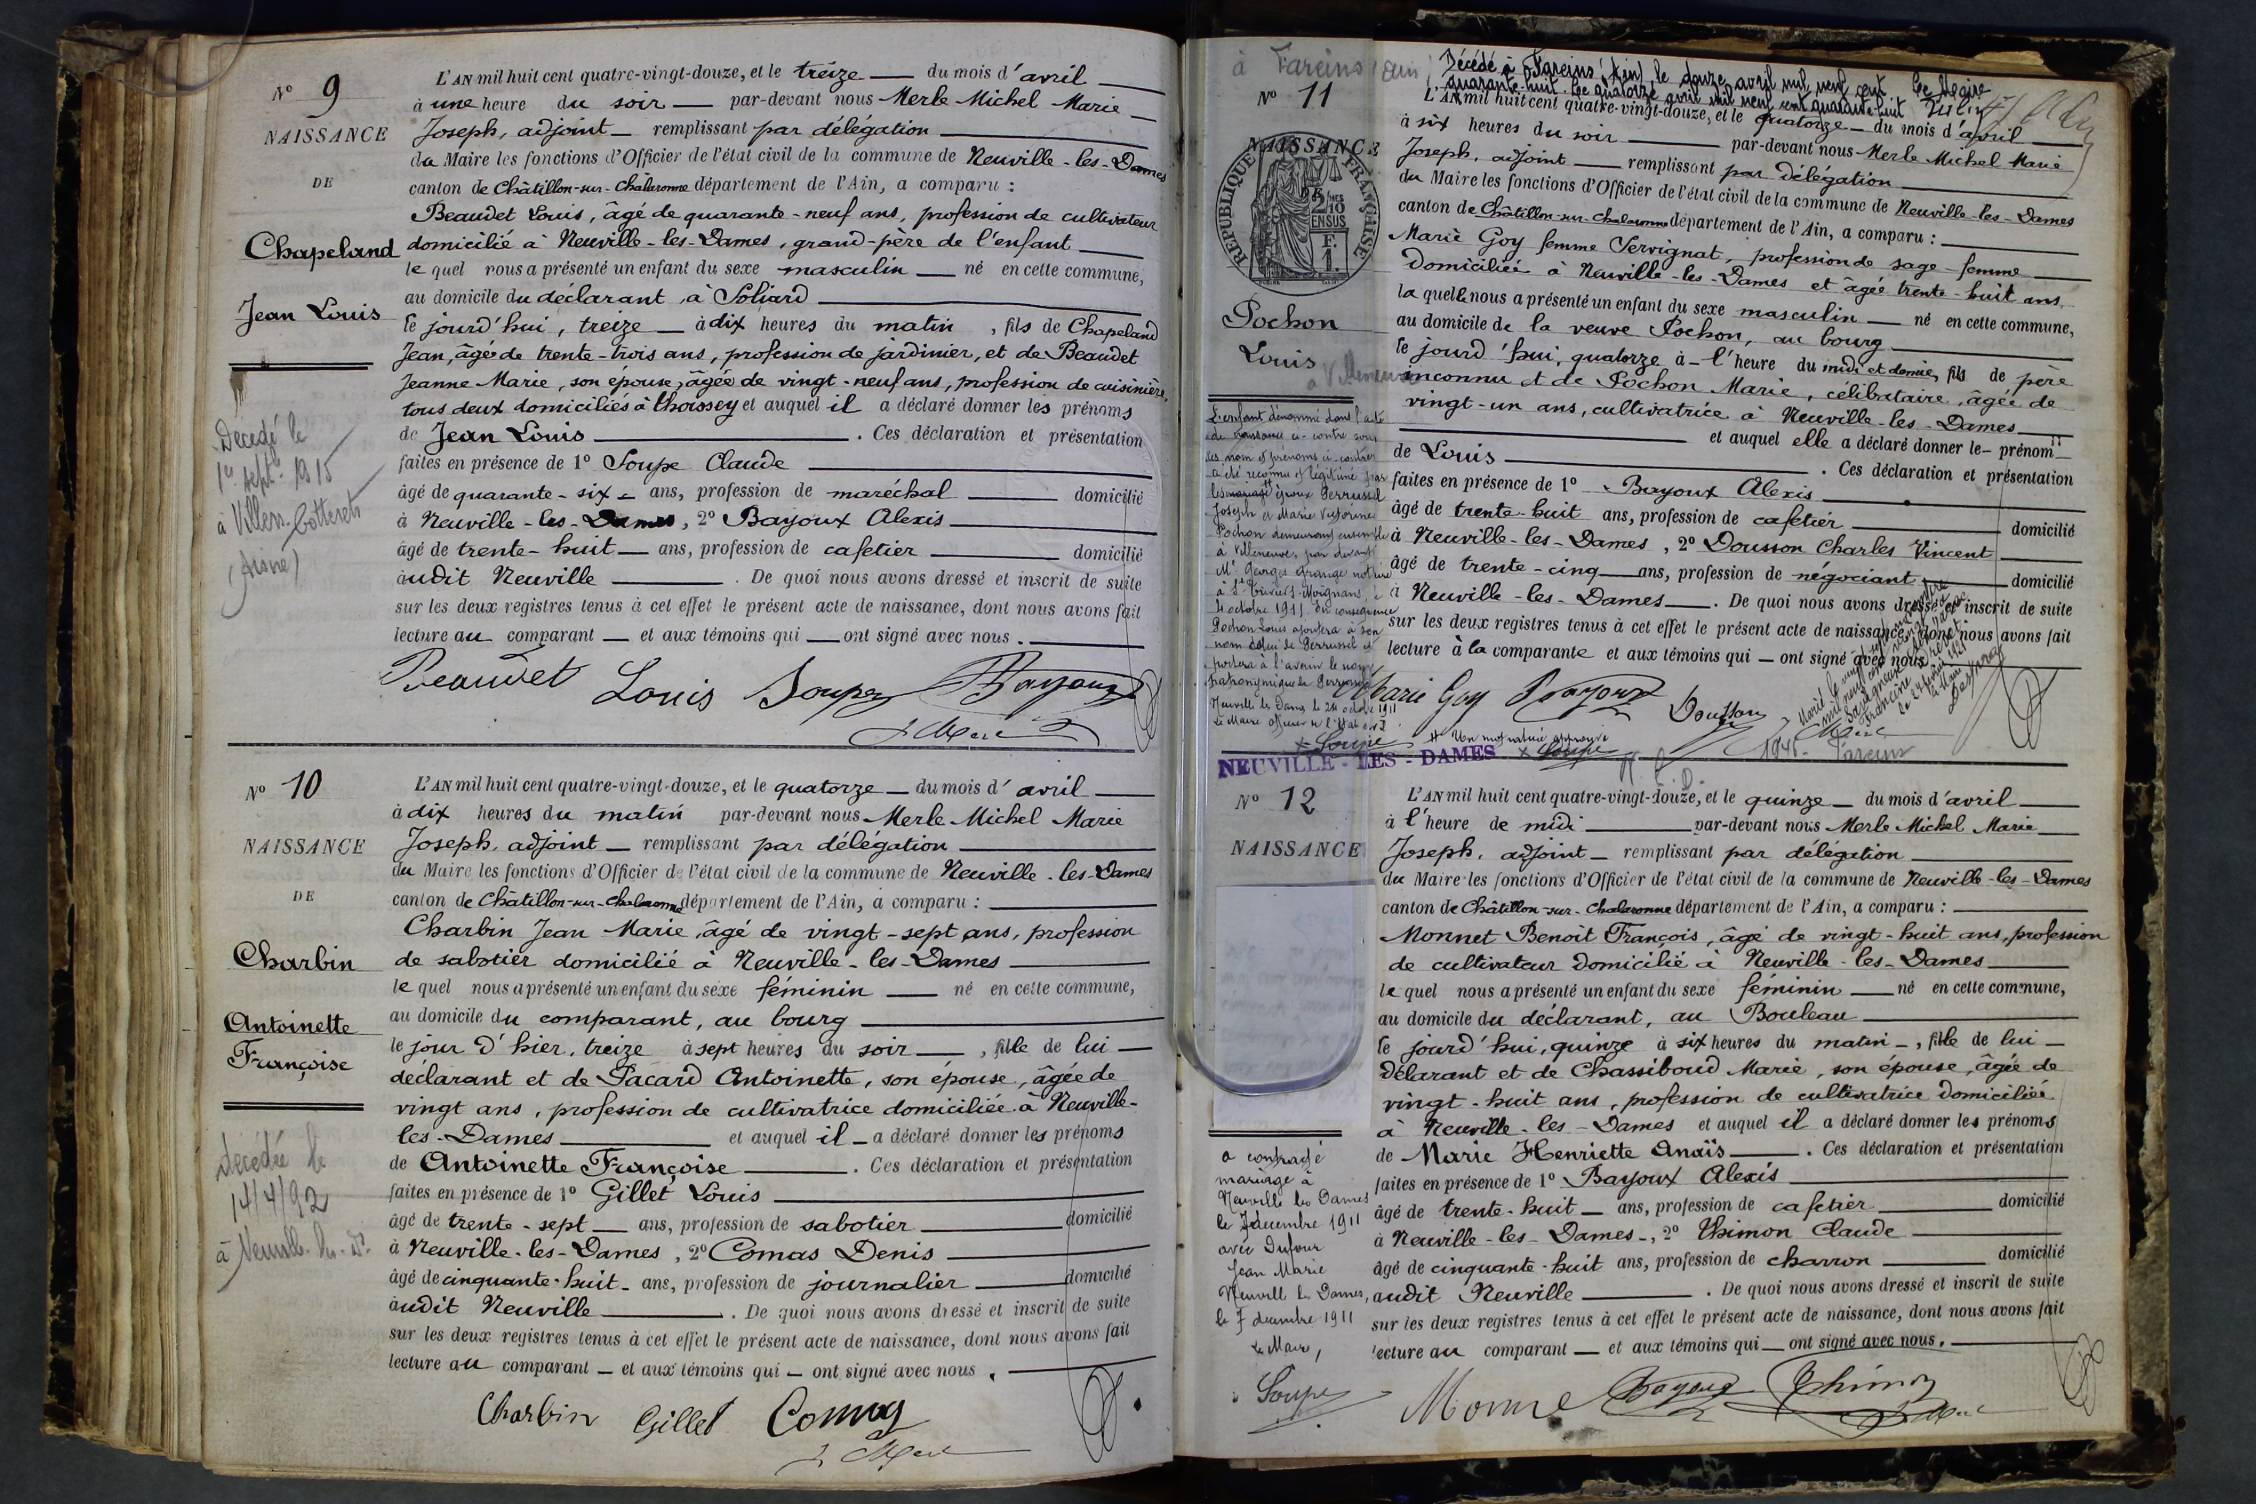 N° 9
NAISSANCE
DE
Chapeland
Jean Louis
Decedé le
1er sept. 1915
à Villers-Cotterets
(Aisne)
L'AN mil huit cent quatre-vingt-douze, et le treize du mois d'avril
à une heure du soir par-devant nous Merle Michel Marie
Joseph, adjoint remplissant par délégation
du Maire les fonctions d'Officier de l'état civil de la commune de Neuville-les-Dames
canton de Châtillon-sur-Chalaronne département de l'Ain, a comparu :
Beaudet Louis, âgé de quarante-neuf ans, profession de cultivateur
domicilié à Neuville-les-Dames, grand-père de l'enfant
le quel nous a présenté un enfant du sexe masculin né en cette commune,
au domicile du déclarant, à Soliard
le jourd'hui, treize à dix heures du matin, fils de Chapeland
Jean, âgé de trente-trois ans, profession de jardinier, et de Beaudet
Jeanne Marie, son épouse, âgée de vingt-neuf ans, profession de cuisinière,
tous deux domiciliés à Thoissey et auquel il a déclaré donner les prénoms
de Jean Louis. Ces déclaration et présentation
faites en présence de 1° Soupe Claude
âgé de quarante-six ans, profession de maréchal domicilié
à Neuville-les-Dames, 2° Bayoux Alexis
âgé de trente-huit ans, profession de cafetier domicilié
audit Neuville. De quoi nous avons dressé et inscrit de suite
sur les deux registres tenus à cet effet le présent acte de naissance, dont nous avons fait
lecture au comparant et aux témoins qui ont signé avec nous.
Beaudet Louis Soupe Bayoux
J Merle
N° 10
NAISSANCE
DE
Charbin
Antoinette
Françoise
Décédée le
14/4/92
à Neuville-les-D.
L'AN mil huit cent quatre-vingt-douze, et le quatorze du mois d'avril
à dix heures du matin par-devant nous Merle Michel Marie
Joseph, adjoint remplissant par délégation
du Maire les fonctions d'Officier de l'état civil de la commune de Neuville-les-Dames
canton de Châtillon-sur-Chalaronne département de l'Ain, a comparu :
Charbin Jean Marie, âgé de vingt-sept ans, profession
de sabotier domicilié à Neuville-les-Dames
le quel nous a présenté un enfant du sexe féminin né en cette commune,
au domicile du comparant, au bourg
le jour d'hier, treize à sept heures du soir, fille de lui
déclarant et de Pacard Antoinette, son épouse, âgée de
vingt ans, profession de cultivatrice domiciliée à Neuville-
les-Dames et auquel il a déclaré donner les prénoms
de Antoinette Françoise. Ces déclaration et présentation
faites en présence de 1° Gillet Louis
âgé de trente-sept ans, profession de sabotier domicilié
à Neuville-les-Dames, 2° Comas Denis
âgé de cinquante-huit ans, profession de journalier domicilié
audit Neuville. De quoi nous avons dressé et inscrit de suite
sur les deux registres tenus à cet effet le présent acte de naissance, dont nous avons fait
lecture au comparant et aux témoins qui ont signé avec nous.
Charbin Gillet Comas
J Merle
à Fareins (Ain)
Décédé à Fareins (Ain) le douze avril mil neuf cent
quarante-huit. Le quatorze avril mil neuf cent quarante-huit
Le Maire
N° 11
NAISSANCE
DE
REPUBLIQUE FRANÇAISE
2/10 EN SUS
F. 1.
Pochon
Louis
à Villeneuve
L'enfant dénommé dans l'acte
de naissance ci-contre sous
les nom et prénoms ci-contre
a été reconnu et légitimé par
les époux Perrussel
Joseph et Marie Victorine
Pochon demeurant ensemble
à Villeneuve, par devant
Me Georges Grange notaire
à St Trivier s-Moignans, le
4 octobre 1911. En conséquence
Pochon Louis ajoutera à son
nom celui de Perrussel et
portera à l'avenir le nom
patronymique de Perrussel
Neuville les Dames le 24 octobre 1911
Le Maire officier de l'Etat civil
Soupe
Un mot rayé approuvé
Soupe
L'AN mil huit cent quatre-vingt-douze, et le quatorze du mois d'avril
à six heures du soir par-devant nous Merle Michel Marie
Joseph, adjoint remplissant par délégation
du Maire les fonctions d'Officier de l'état civil de la commune de Neuville-les-Dames
canton de Châtillon-sur-Chalaronne département de l'Ain, a comparu :
Marie Goy femme Servignat, profession de sage-femme
domiciliée à Neuville-les-Dames et âgée trente-huit ans
la quelle nous a présenté un enfant du sexe masculin né en cette commune,
au domicile de la veuve Pochon, au bourg
le jourd'hui, quatorze à l'heure du midi et demie, fils de père
inconnu et de Pochon Marie, célibataire, âgée de
vingt-un ans, cultivatrice à Neuville-les-Dames
et auquel elle a déclaré donner le prénom
de Louis. Ces déclaration et présentation
faites en présence de 1° Bayoux Alexis
âgé de trente-huit ans, profession de cafetier domicilié
à Neuville-les-Dames, 2° Dousson Charles Vincent
âgé de trente-cinq ans, profession de négociant domicilié
à Neuville-les-Dames. De quoi nous avons dressé et inscrit de suite
sur les deux registres tenus à cet effet le présent acte de naissance, dont nous avons fait
lecture à la comparante et aux témoins qui ont signé avec nous
Marie Goy Bayoux Dousson
Merle
Fareins
NEUVILLE-LES-DAMES
N° 12
NAISSANCE
a contracté
mariage à
Neuville les Dames
le 7 décembre 1911
avec Dufour
Jean Marie
Neuville les Dames,
le 7 décembre 1911
Le Maire,
Soupe
L'AN mil huit cent quatre-vingt-douze, et le quinze du mois d'avril
à l'heure de midi par-devant nous Merle Michel Marie
Joseph, adjoint remplissant par délégation
du Maire les fonctions d'Officier de l'état civil de la commune de Neuville-les-Dames
canton de Châtillon-sur-Chalaronne département de l'Ain, a comparu :
Monnet Benoit François, âgé de vingt-huit ans, profession
de cultivateur domicilié à Neuville-les-Dames
le quel nous a présenté un enfant du sexe féminin né en cette commune,
au domicile du déclarant, au Bouleau
le jourd'hui, quinze à six heures du matin, fille de lui
délarant et de Chassiboud Marie, son épouse, âgée de
vingt-huit ans, profession de cultivatrice domiciliée
à Neuville-les-Dames et auquel il a déclaré donner les prénoms
de Marie Henriette Anaïs. Ces déclaration et présentation
faites en présence de 1° Bayoux Alexis
âgé de trente-huit ans, profession de cafetier domicilié
à Neuville-les-Dames, 2° Thimon Claude
âgé de cinquante-huit ans, profession de charron domicilié
audit Neuville. De quoi nous avons dressé et inscrit de suite
sur les deux registres tenus à cet effet le présent acte de naissance, dont nous avons fait
lecture au comparant et aux témoins qui ont signé avec nous.
Monnet Bayoux Thimon
J Merle